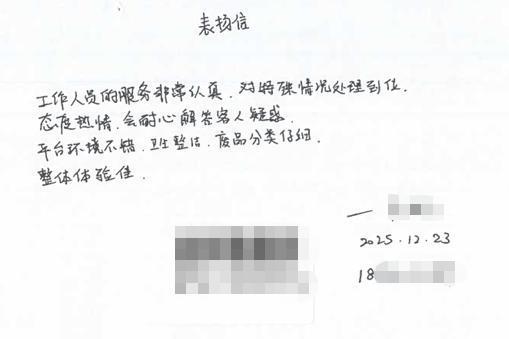 表扬信
工作人员的服务非常认真，对特殊情况处理到位.
态度热情，会耐心解答客人疑惑.
平台环境不错，卫生整洁，废品分类仔细.
整体体验佳.
—
2025.12.23
18